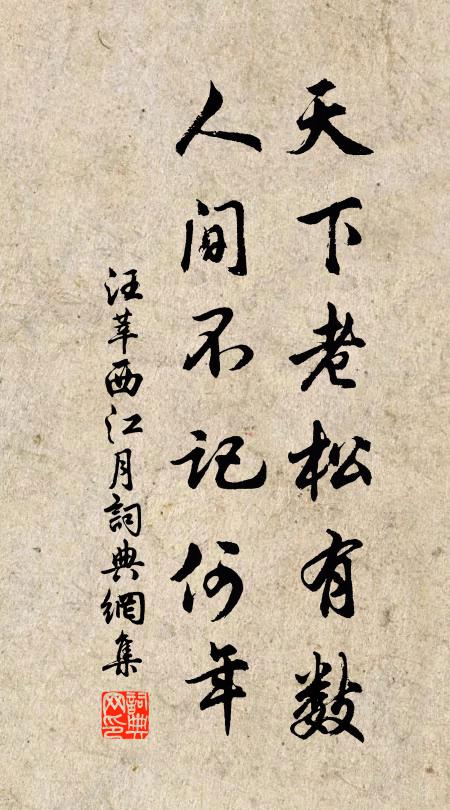 天下老松有數
人間不記何年
汪莘西江月詞典網集
詞典網印